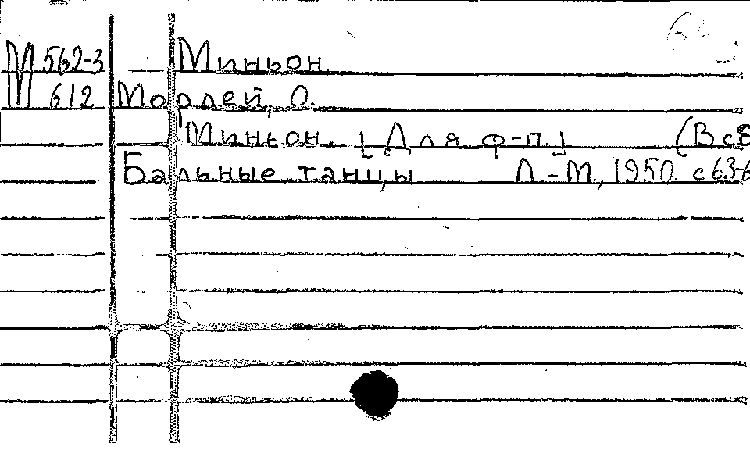 М 562-3 Миньон
612 Морлей, О.
Миньон. [Для ф-п.] (В сб
Бальные танцы Л-М, 1950. с 63-6